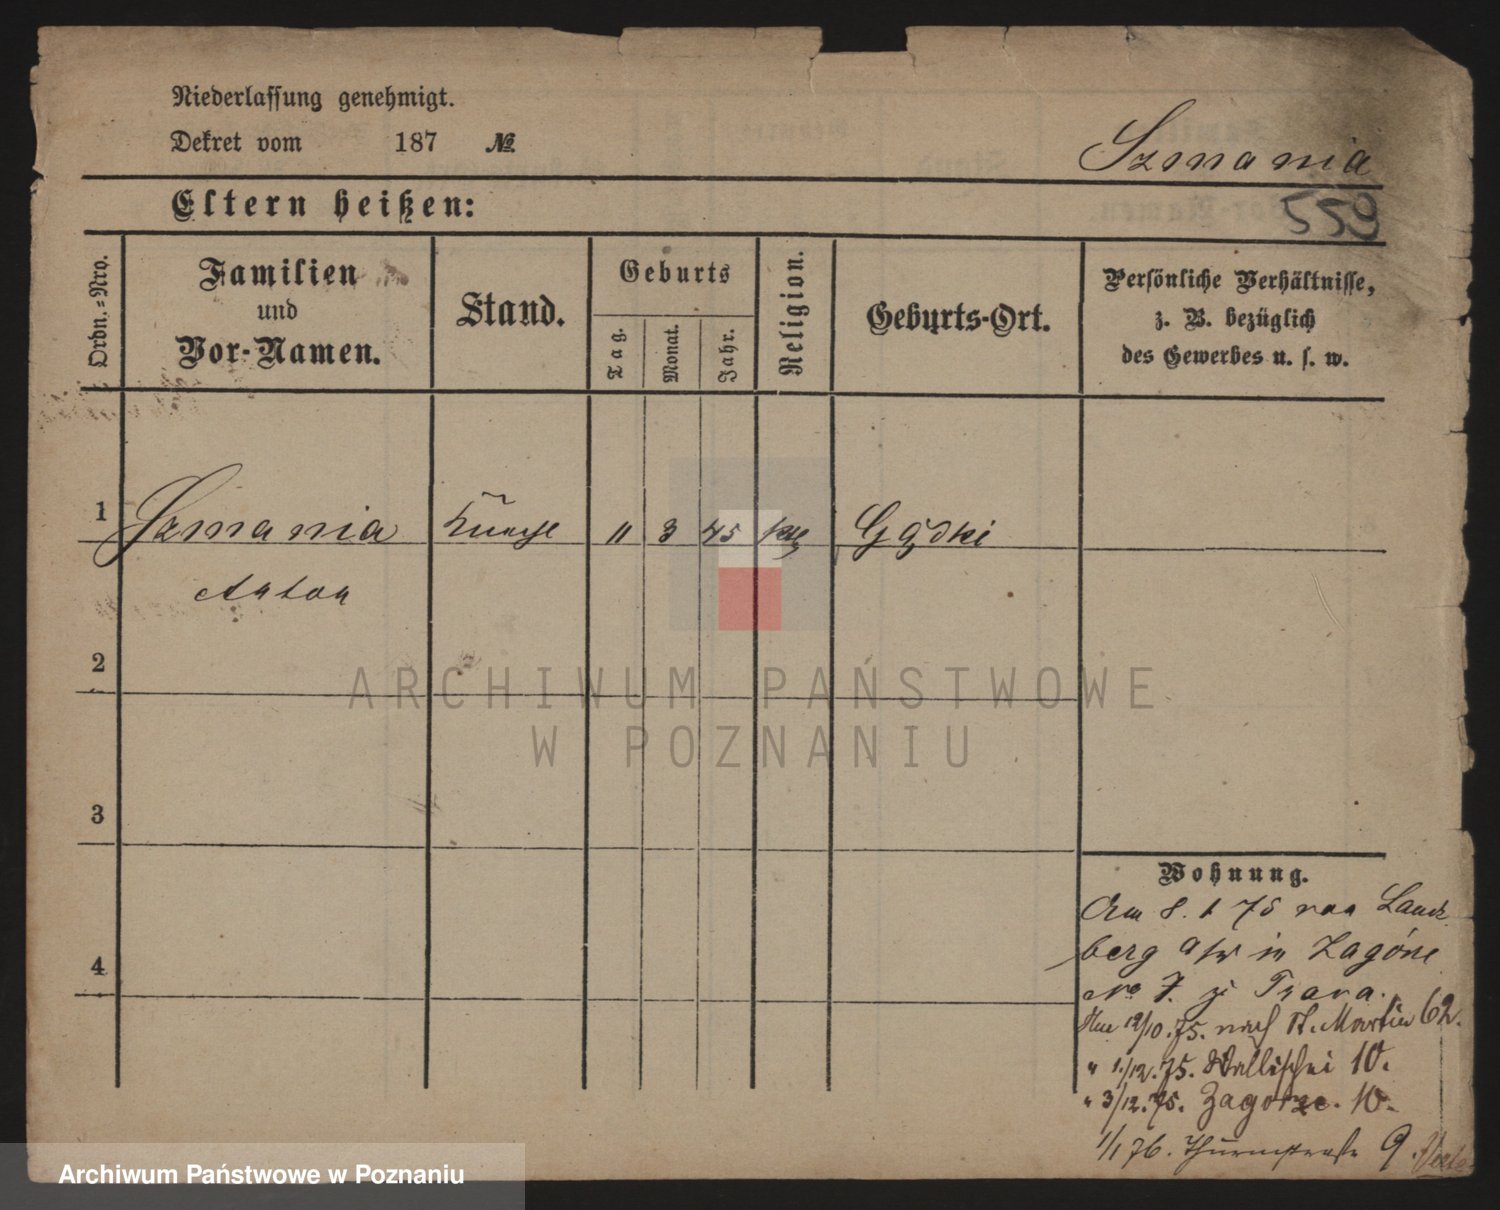 Niederlassung genehmigt.
Dekret vom 187 №
Szmania
Eltern heißen:
559
Ordn.-Nro.
Familien
und
Vor-Namen.
Stand.
Geburts
Tag.
Monat.
Jahr.
Religion.
Geburts-Ort.
Persönliche Verhältnisse,
z. B. bezüglich
des Gewerbes u. s. w.
1 Szmania 11 3 45 kath Gądki
Anton
2
ARCHIWUM PAŃSTWOWE
W POZNANIU
3
4
Wohnung.
Am 8. 1 75 von Lands
berg a/w in Zagórze
No 7. zu
Am 12/10.75. nach St. Martin 62.
" 1./12.75. Wallischei 10.
" 3/12.75. Zagorze. 10.
1/1 76. Thurmstraße 9.
Archiwum Państwowe w Poznaniu